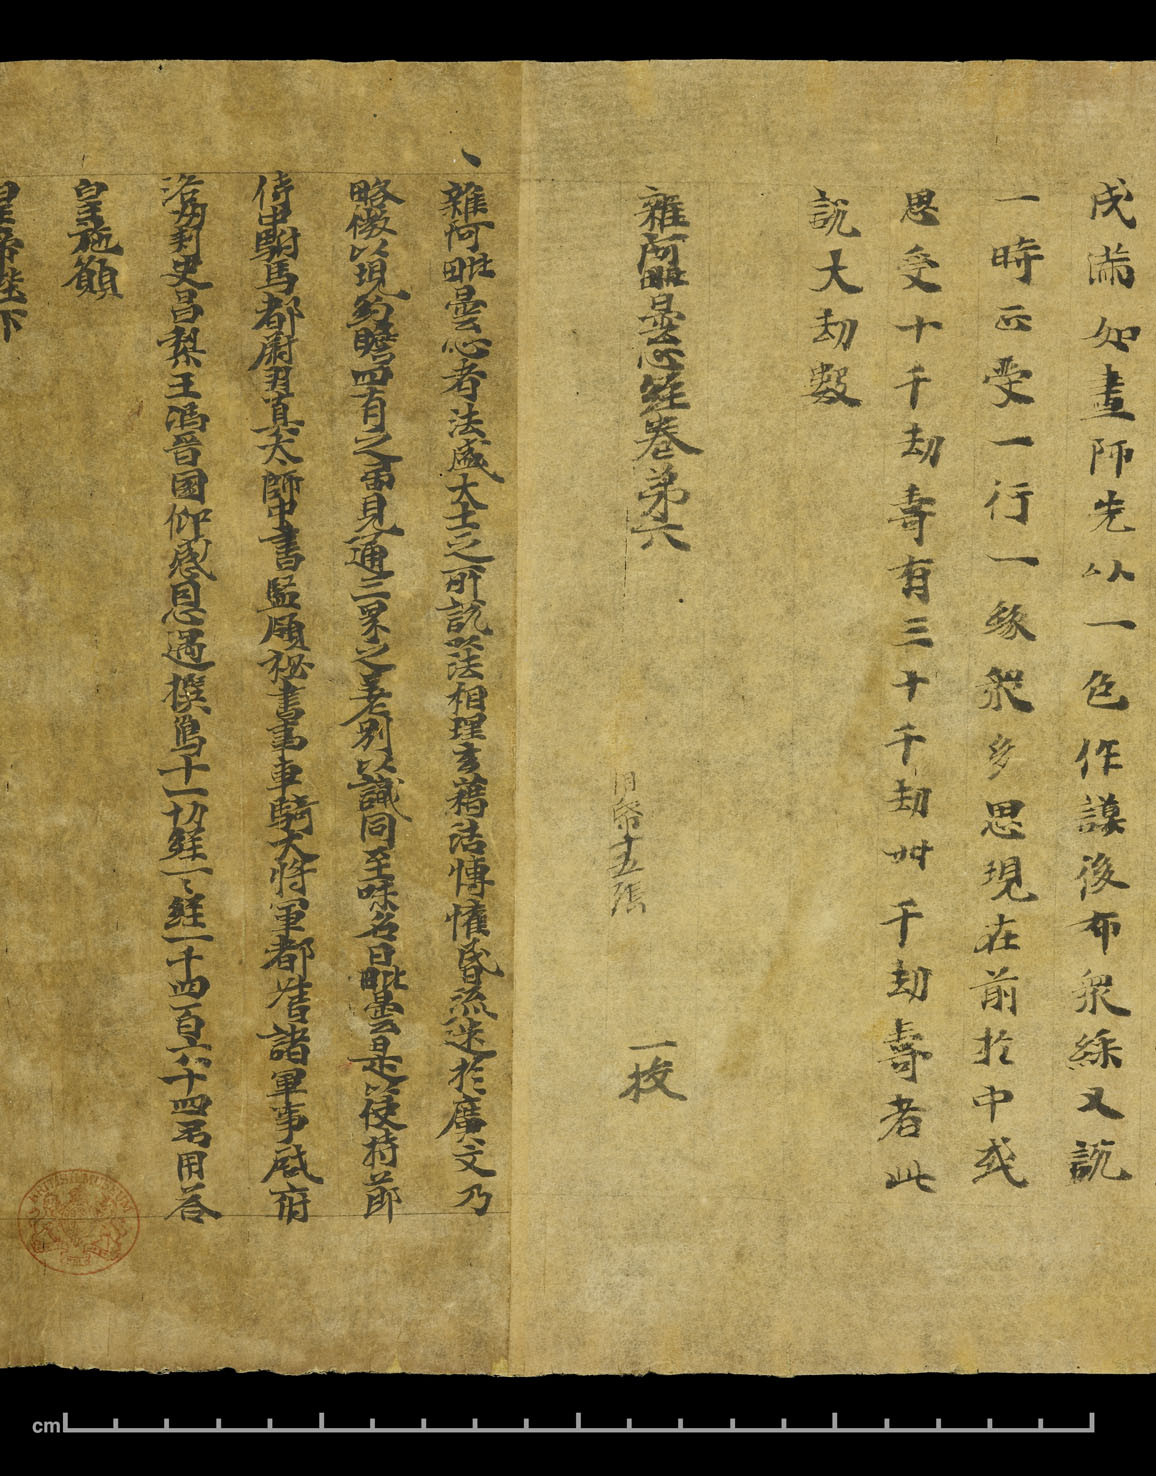 成滿如畫師先以一色作謨後布衆綵又說
一時正受一行一緣衆多思現在前於中或
思受十千劫壽有三十千劫卌千劫壽者此
說大劫數
雜阿毗曇心經卷第六
用帋十五張
一校
雜阿毗曇心者法盛大士之所說以法相理玄藉浩博懼昏流迷於廣文乃
略撽以現約瞻四有之局見通三界之差別以識同至味名曰毗曇是以使持節
侍中駙馬都尉羽真太師中書監領秘書事車騎大將軍都督諸軍事啟府
洛州刺史昌梨王馮晉國仰感恩遇撰寫十一切經一〻經一千四百六十四弓用答
皇施願
皇帝陛下
BRITISH MUSEUM
cm